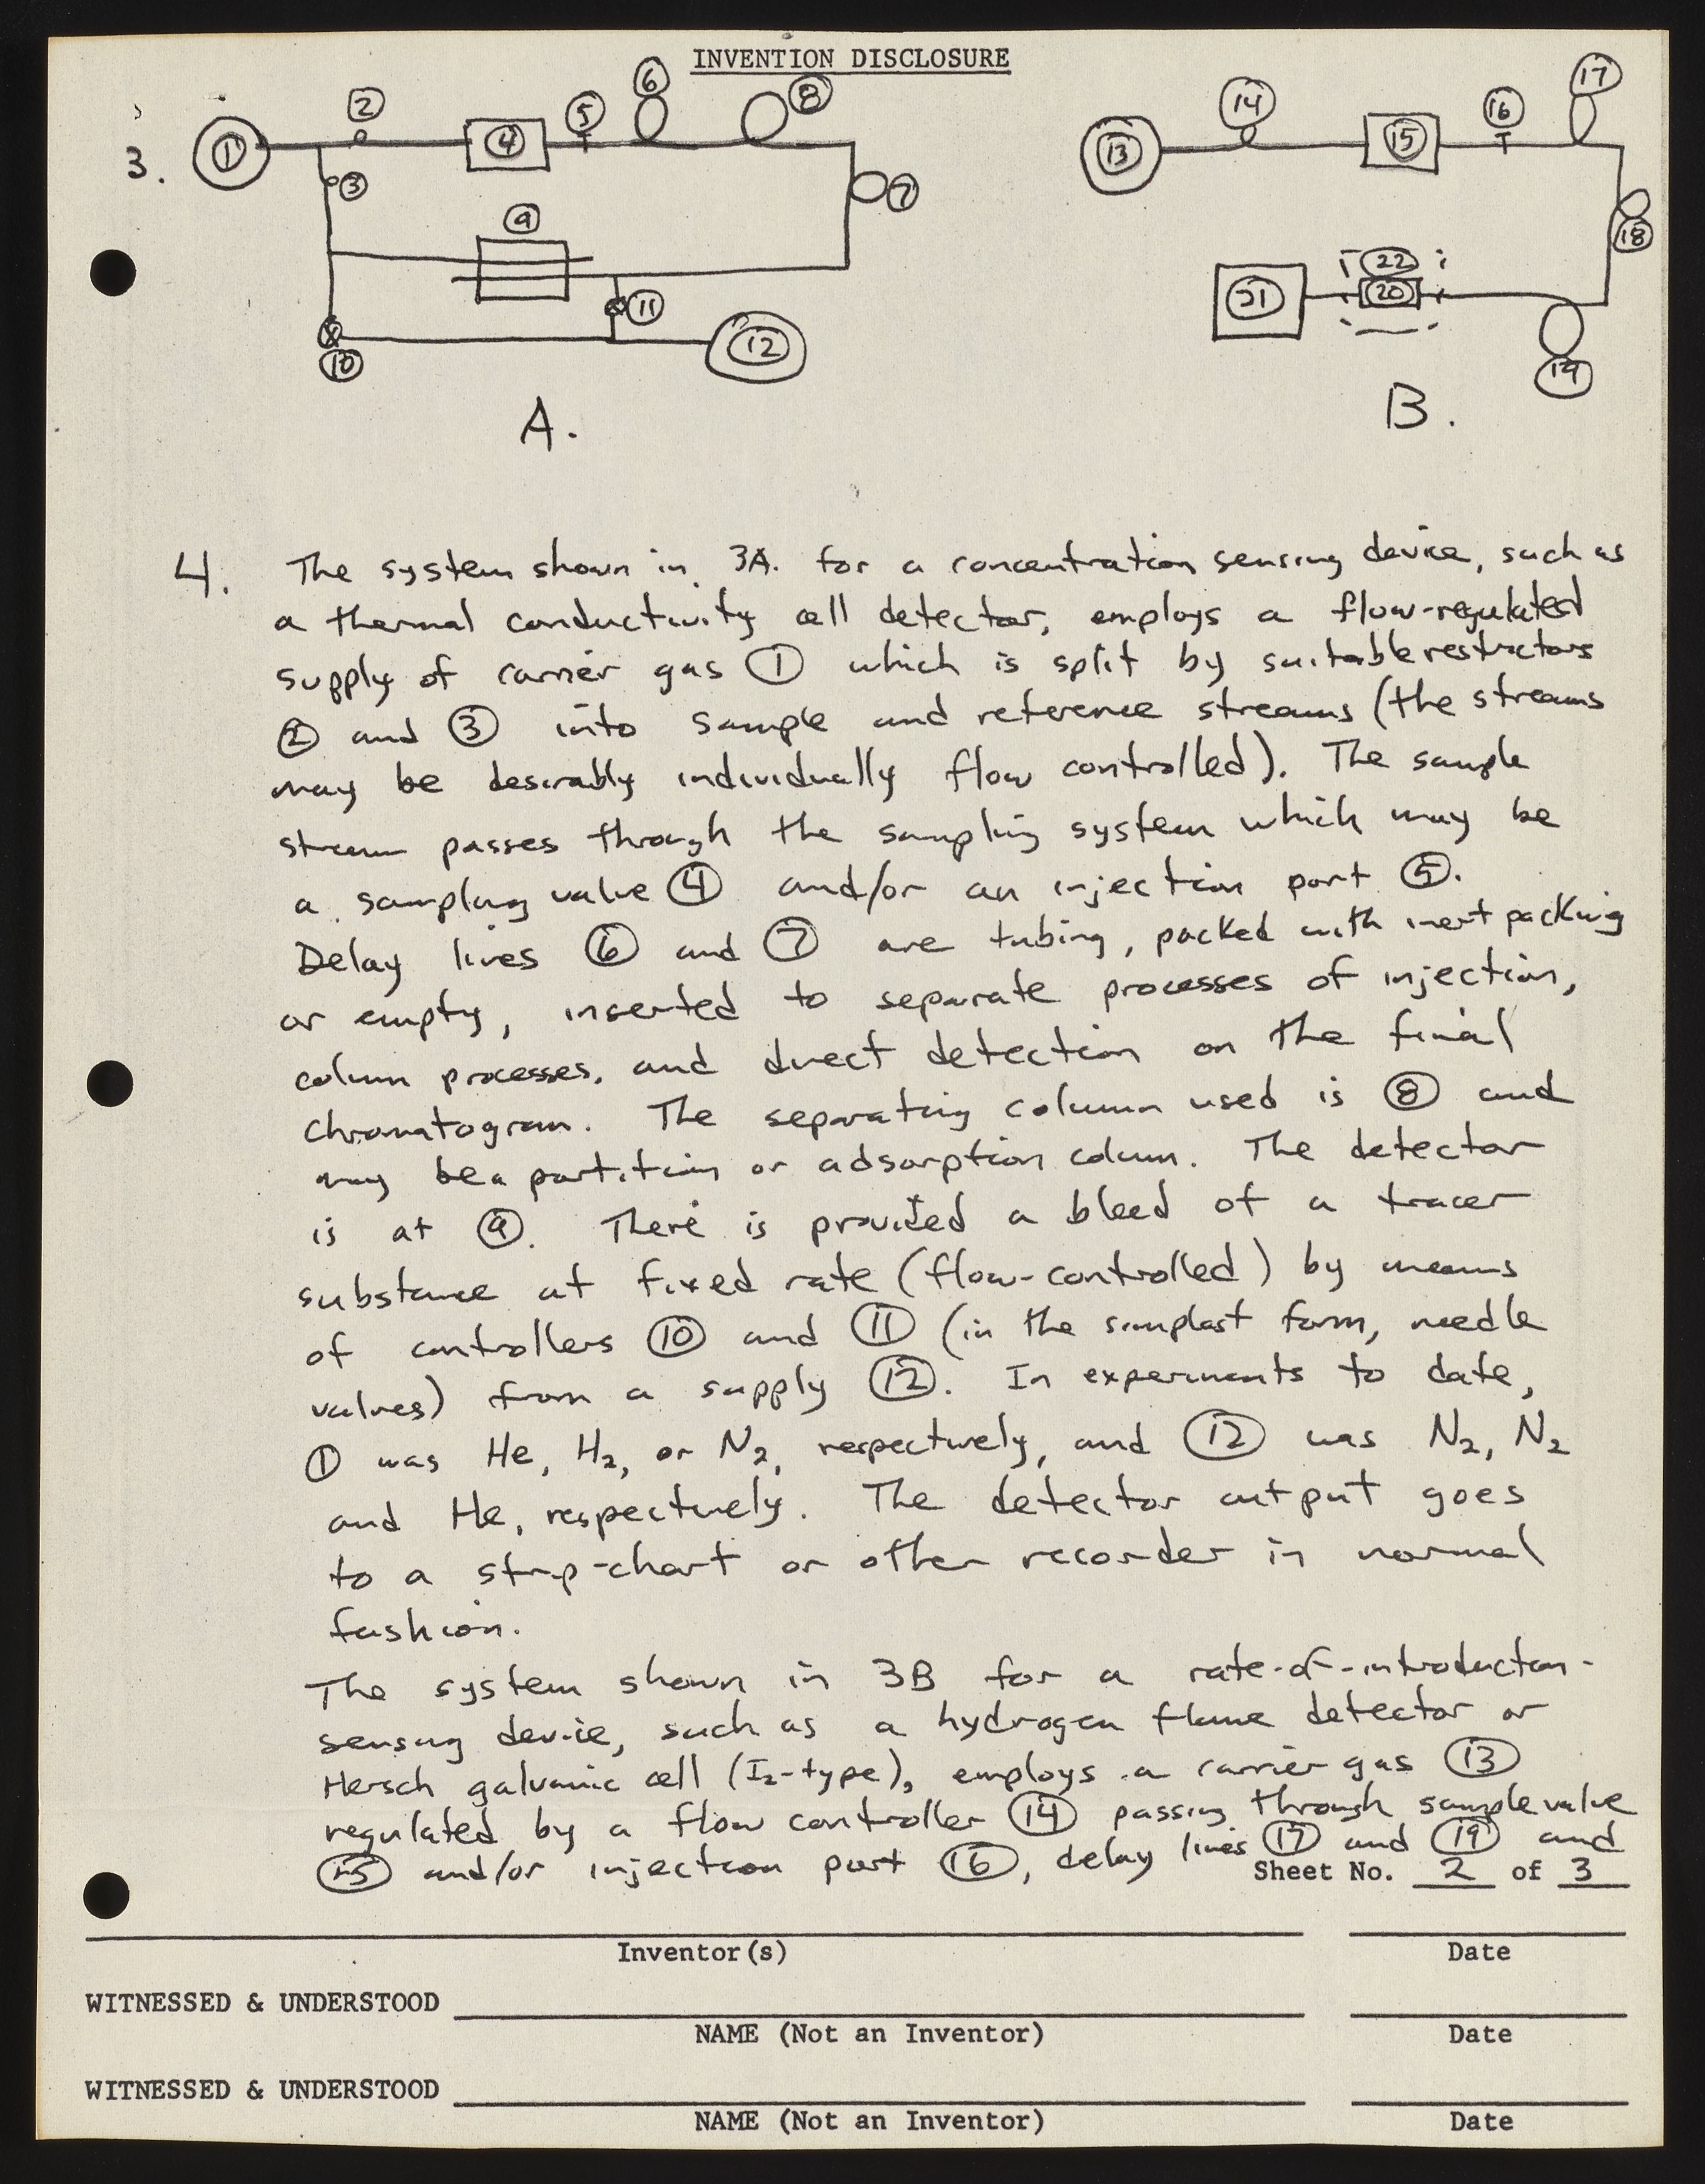 INVENTION DISCLOSURE
3.
① ② ③ ④ ⑤ ⑥ ⑧ ⑦ ⑨ ⑩ ⑪ ⑫
A.
⑬ ⑭ ⑮ ⑯ ⑰ ⑱ ⑲ ⑳ ㉑ ㉒
B.
4. The system shown in 3A. for a concentration sensing device, such as
a thermal conductivity cell detector, employs a flow-regulated
supply of carrier gas ① which is split by suitable restrictors
② and ③ into sample and reference streams (the streams
may be desirably individually flow controlled). The sample
stream passes through the sampling system which may be
a sampling valve ④ and/or an injection port ⑤.
Delay lines ⑥ and ⑦ are tubing, packed with inert packing
or empty, inserted to separate processes of injection,
column processes, and direct detection on the final
chromatogram. The separating column used is ⑧ and
may be a partition or adsorption column. The detector
is at ⑨. There is provided a bleed of a tracer
substance at fixed rate (flow-controlled) by means
of controllers ⑩ and ⑪ (in the simplest form, needle
valves) from a supply ⑫. In experiments to date,
① was He, H₂, or N₂, respectively, and ⑫ was N₂, N₂
and He, respectively. The detector output goes
to a strip-chart or other recorder in normal
fashion.
The system shown in 3B for a rate-of-introduction-
sensing device, such as a hydrogen flame detector or
Hersch galvanic cell (I₂-type), employs a carrier gas ⑬
regulated by a flow controller ⑭ passing through sample valve
⑮ and/or injection port ⑯, delay lines ⑰ and ⑲ and
Sheet No. 2 of 3
Inventor(s) Date
WITNESSED & UNDERSTOOD
NAME (Not an Inventor) Date
WITNESSED & UNDERSTOOD
NAME (Not an Inventor) Date